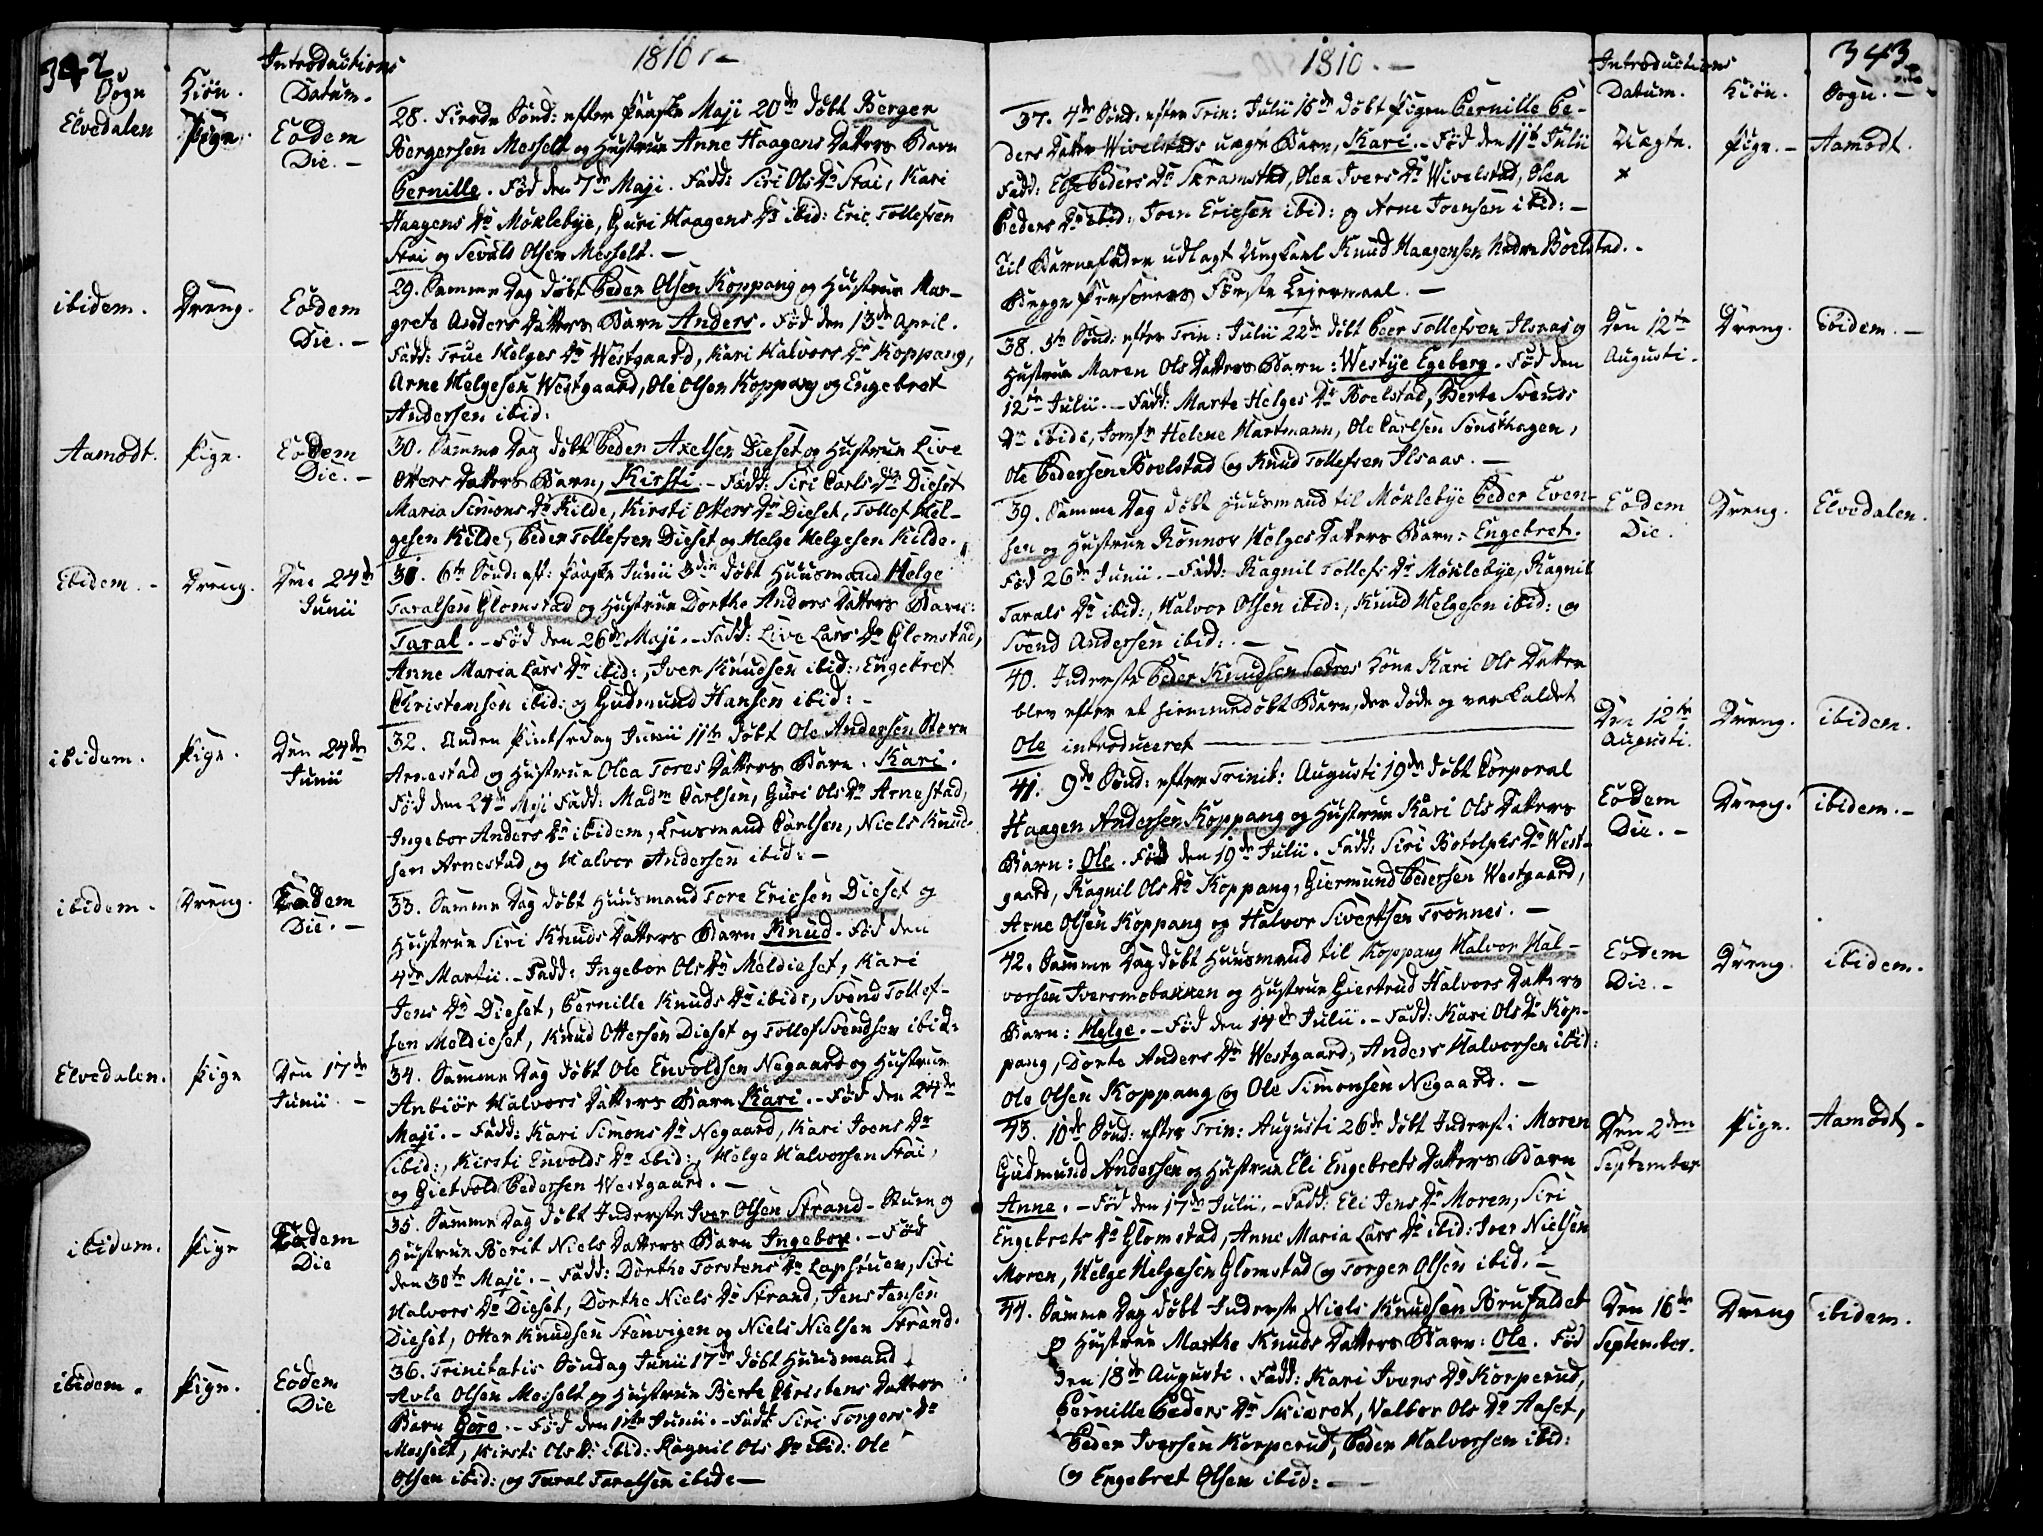 342.
1810. -
Sogn
Kiön.
Introductions
Datum.
Elvedalen
Pige.
Eodem
Die. -
28. Fierde Sönd: efter Paaske Maji 20de döbt Berger
Bergersen Messelt og Hustrue Anne Haagens Datters Barn
Pernille. Föd den 7de Maji. Fadd: Siri Ols Dr Stai, Kari
Haagens Dr Möklebye, Guri Haagens Dr ibid: Eric Tollefsen
Stai og Sevald Olsen Messelt. -
ibidem.
Dreng.
Eodem
Die. -
29. Samme Dag döbt Peder Olsen Koppang og Hustrue Mar-
grete Anders Datters Barn Anders. Föd den 13de April.
Fadd: True Helges Dr Westgaard, Kari Halvors Dr Koppang,
Arne Helgesen Westgaard, Ole Olsen Koppang og Engebret
Andersen ibid:
Aamodt.
Pige.
Eodem
Die. -
30. Samme Dag döbt Peder Axelsen Dieset og Hustrue Live
Otters Datters Barn, Kirsti. - Fadd: Siri Carls Dr Dieset
Maria Simons Dr Kilde, Kirsti Otters Dr Dieset, Tollef Hel-
gesen Kilde, Peder Tollefsen Dieset og Helge Helgesen Kilde.
Ibidem. -
Dreng.
Den 24de
Junii
31. 6te Sönd: eft: Paaske Junii 3die döbt Huusmand Helge
Taralsen Glomstad og Hustrue Dorthe Anders Datters Barn:
Taral. - Föd den 26de Maji. - Fadd: Live Lars Dr Glomstad,
Anne Maria Lars Dr ibid:, Iver Knudsen ibid:, Engebret
Christensen ibid: og Gudmund Hansen ibid: -
ibidem.
Pige.
Den 24de
Junii
32. Anden Pintsedag Junii 11te döbt Ole Andersen Stern
Arnestad og Hustrue Olea Tores Datters Barn. Kari.
Föd den 24de Maji Fadd: Madm Carlsen, Guri Ols Dr Arnestad,
Ingebor Anders Dr ibidem, Lensmand Carlsen, Niels Knud-
sen Arnestad og Halvor Andersen ibid: -
ibidem.
Dreng.
Eodem
Die. -
33. Samme Dag döbt Huusmand Tore Ericsen Dieset og
Hustrue Siri Knuds Datters Barn Knud. Föd den
4de Martii. - Fadd: Ingebor Ols Dr Meldieset, Kari
Jens Dr Dieset, Pernille Knuds Dr ibid:, Svend Tollef-
sen Meldieset, Knud Ottersen Dieset og Tollef Svendsen ibid:
Elvedalen.
Pige
Den 17de
Junii. -
34. Samme Dag döbt Ole Envoldsen Negaard og Hustrue
Anbiör Halvors Datters Barn Kari. - Föd den 24de
Maji. - Fadd: Kari Simons Dr Negaard, Kari Joens Dr
ibid:, Kirsti Envolds Dr ibid:, Helge Halvorsen Stai,
og Gietvold Pedersen Westgaard. -
ibidem.
Pige
Eodem
Die
35. Samme Dag döbt Inderste Iver Olsen Strand-Stuen og
Hustrue Berit Niels Datters Barn Ingebor. - Föd
den 30te Maji. - Fadd: Dorthe Torstens Dr Lapstuen, Siri
Halvors Dr Dieset, Dorthe Niels Dr Strand, Jens Jensen
Dieset, Otter Knudsen Stenvigen og Niels Nielsen Strand.
ibidem.
Pige.
Eodem
Die
36. Trinitatis Söndag Junii 17de döbt Huusmand
Avle Olsen Messelt og Hustrue Berte Christens Datters
Barn Goro. - Föd den 1ste Junii. - Fadd: Siri Torgers Dr
Messelt, Kirsti Ols Dr ibid: Ragnil Ols Dr ibid: Ole
Olsen ibid: og Taral Taralsen ibid: -
1810. -
Introductions
Datum.
Kiön.
343
Sogn. -
37. 4de Sönd: efter Trin: Julii 15de döbt Pigen Pernille Pe-
ders Datter Wivelstads uægte Barn, Kari. - Föd den 11te Julii
Fadd: Else Peders Dr Skramstad, Olea Ivers Dr Wivelstad, Olea
Peders Dr ibid: Joen Ericsen ibid: og Arne Joensen ibid: -
Til Barnefader udlagt Ungkarl Knud Haagensen Nedre Boelstad. -
Begge Personers Förste Leiermaal. -
Uægte.
x
Pige. -
Aamodt.
38. 5te Sönd: efter Trin: Julii 22de döbt Peer Tollefsen Ilsaas og
Hustrue Maren Ols Datters Barn: Westye Egeberg. Föd den
12te Julii. - Fadd: Marte Helges Dr Boelstad, Berte Svends
Dr ibid:, Jomfr Helene Hartmann, Ole Carlsen Sönsthagen,
Ole Pedersen Boelstad og Knud Tollefsen Ilsaas. -
Den 12te
Augusti.
Dreng.
ibidem. -
39. Samme Dag döbt Huusmand til Möklebye Peder Even-
sen og Hustrue Rönnov Helges Datters Barn: Engebret.
Föd 26de Junii. - Fadd: Ragnil Tollefs Dr Möklebye, Ragnil
Tarals Dr ibid:, Halvor Olsen ibid:, Knud Helgesen ibid: og
Svend Andersen ibid: -
Eodem
Die.
Dreng.
Elvedalen.
40. Inderste Peder Knudsen Kone Kari Ols Datter
blev efter et hiemmedöbt Barn, der döde og var kaldet
Ole introduceret
Den 12te
Augusti.
Dreng.
ibidem.
41. 9de Sönd: efter Trinit: Augusti 19de döbt Corporal
Haagen Andersen Koppang og Hustrue Kari Ols Datters
Barn: Ole. Föd den 19de Julii. Fadd: Siri Botolphs Dr West-
gaard, Ragnil Ols Dr Koppang, Giermund Pedersen Westgaard,
Arne Olsen Koppang og Halvor Sivertsen Trönnes. -
Eodem
Die. -
Dreng.
ibidem. -
42. Samme Dag döbt Huusmand til Koppang Halvor Hal-
vorsen Iversmobakken og Hustrue Giertrud Halvors Datters
Barn: Helge. - Föd den 14de Julii. - Fadd: Kari Ols Dr Kop-
pang, Dorte Anders Dr Westgaard, Anders Halvorsen ibid:
Ole Olsen Koppang og Ole Simonsen Negaard. -
Eodem
Die. -
Dreng.
ibidem.
43. 10de Sönd: efter Trin: Augusti 26de döbt Inderst i Moren
Gudmund Andersen og Hustrue Eli Engebrets Datters Barn
Anne. - Föd den 17de Julii. - Fadd: Eli Jens Dr Moren, Siri
Engebrets Dr Glomstad, Anne Maria Lars Dr ibid: Iver Nielsen
Moren, Helge Helgesen Glomstad og Torger Olsen ibid. -
Den 2den
September
Pige.
Aamodt -
44. Samme Dag döbt Inderste Niels Knudsen Brufaldet
og Hustrue Marthe Knuds Datters Barn: Ole. Föd
den 18de Augusti. Fadd: Kari Ivers Dr Korperud,
Pernille Peders Dr Skiæret, Valbor Ols Dr Aaset,
Peder Iversen Korperud, Peder Halvorsen ibid:
og Engebret Olsen ibid: -
Den 16de
September.
Dreng
ibidem.